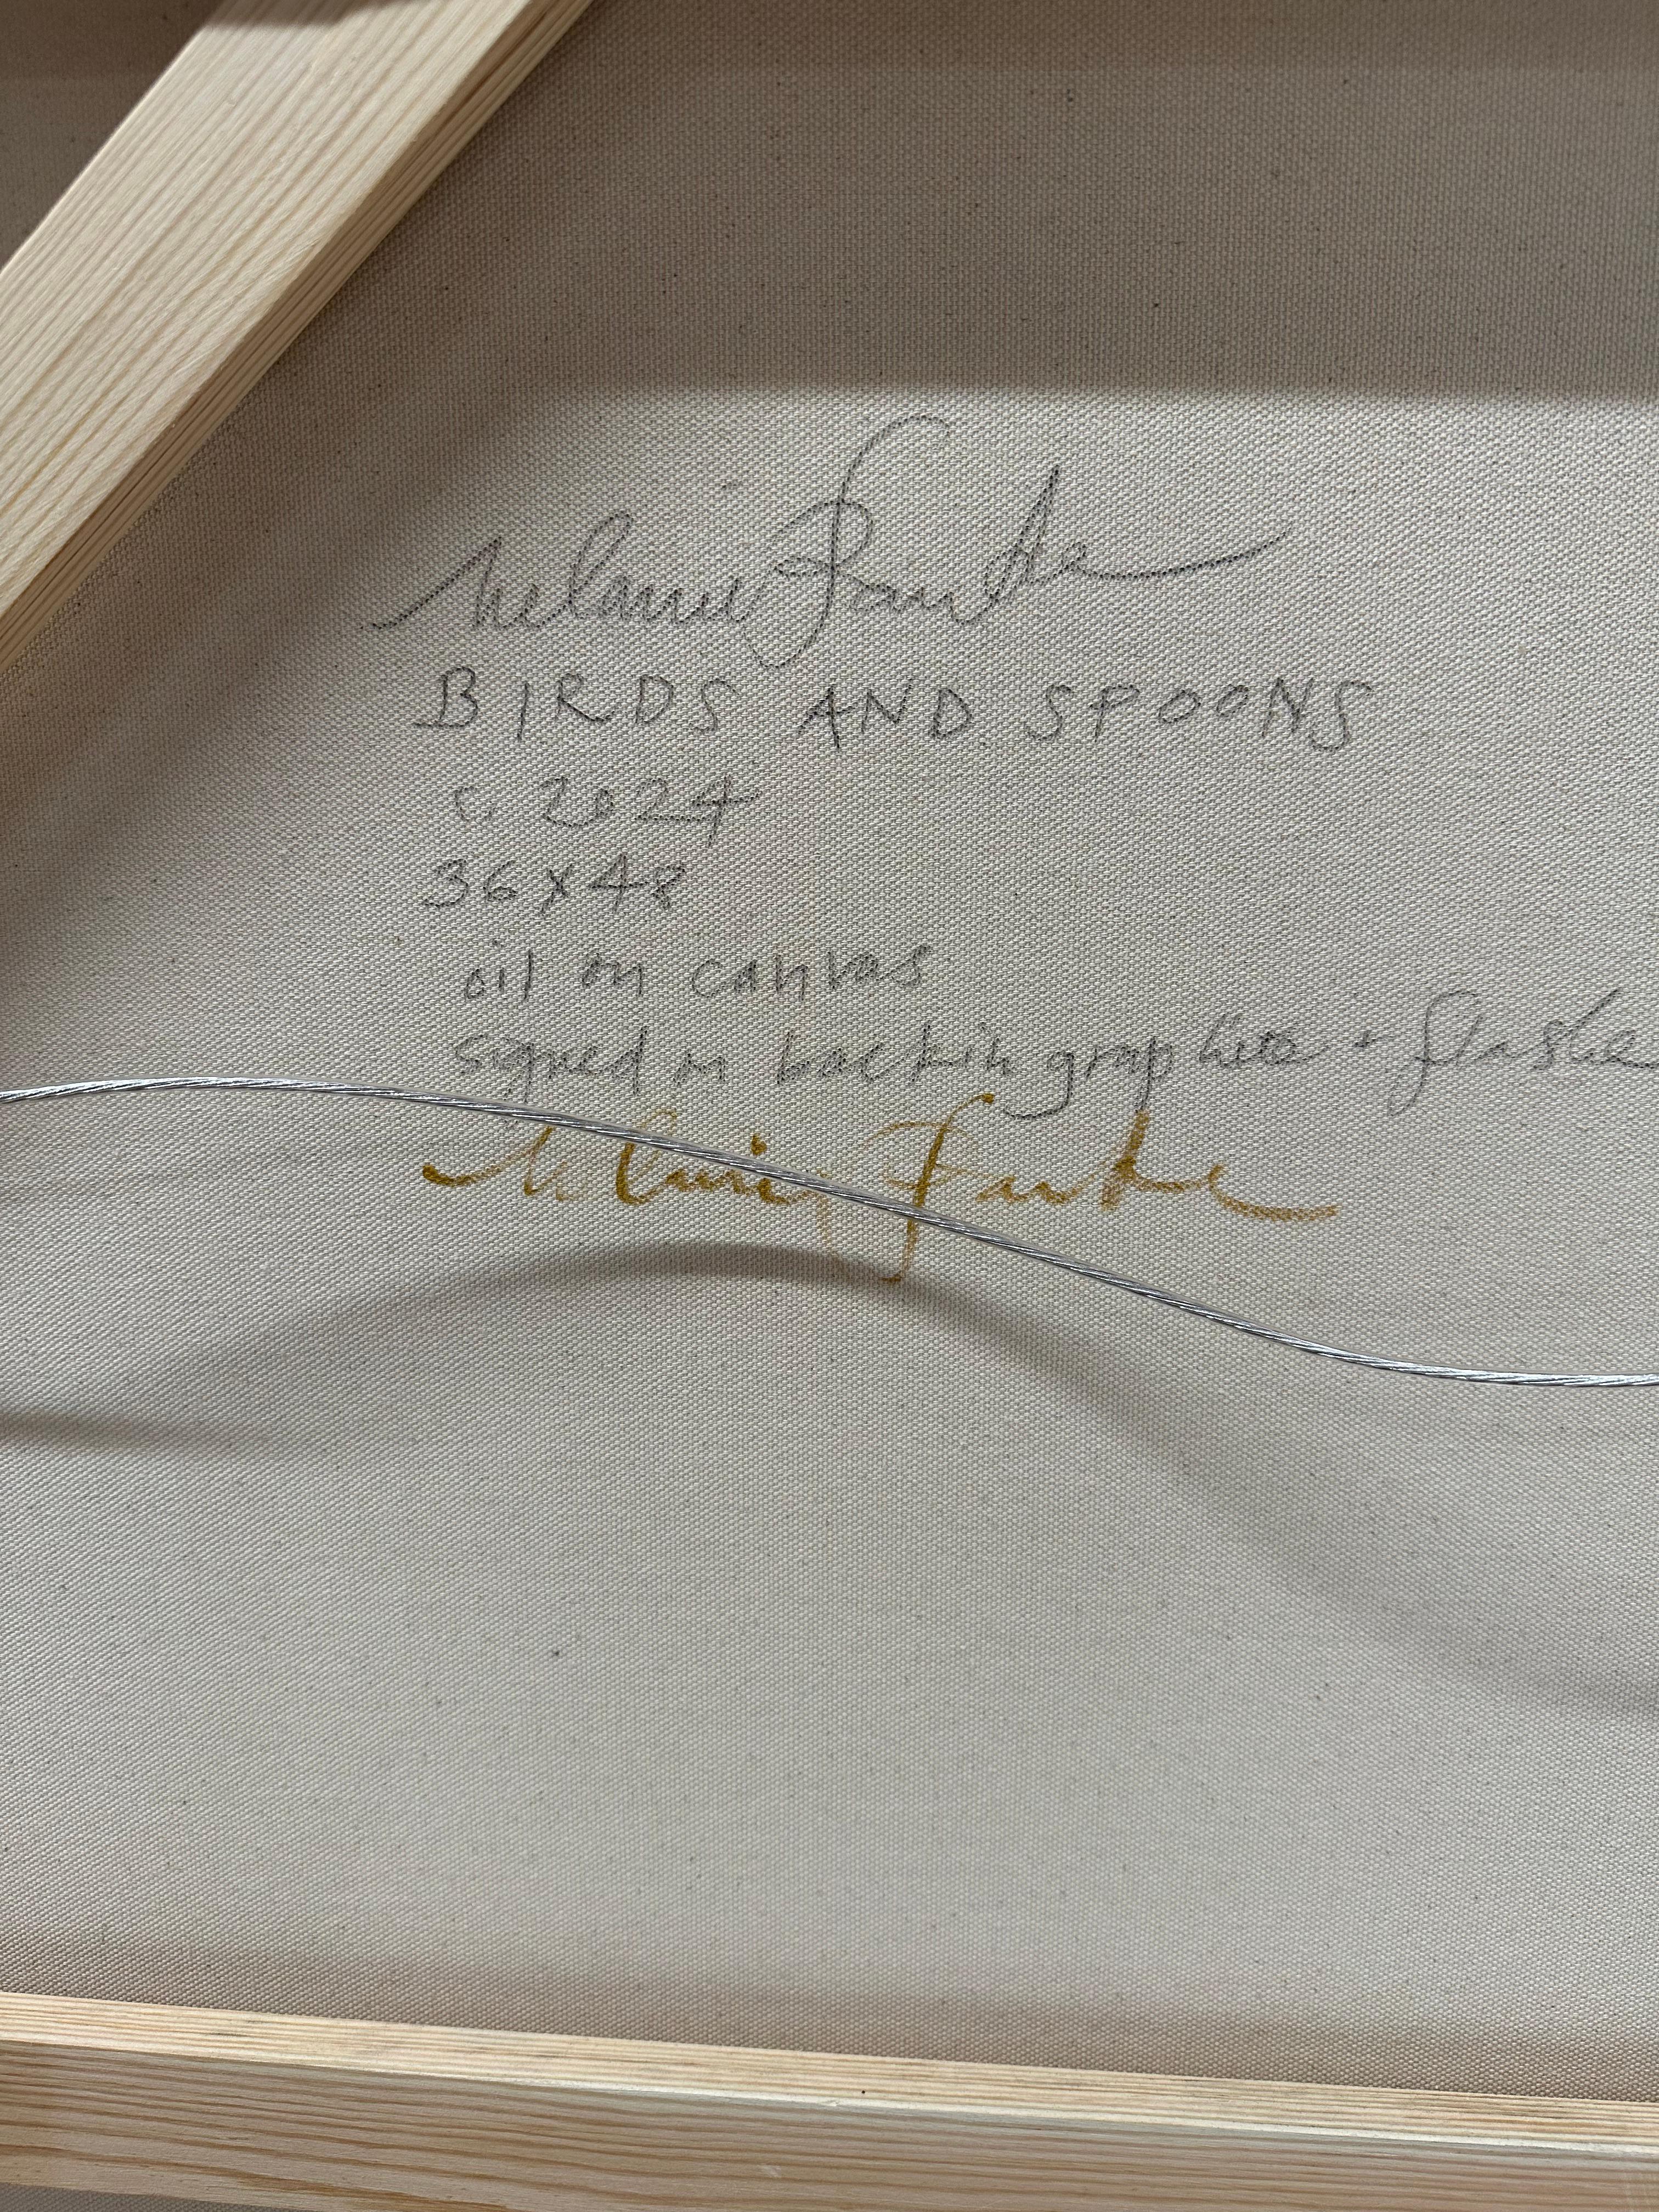 Melanie Parke
BIRDS AND SPOONS
c. 2024
36x48
oil on canvas
signed on back in graphite + flashe
Melanie Parke